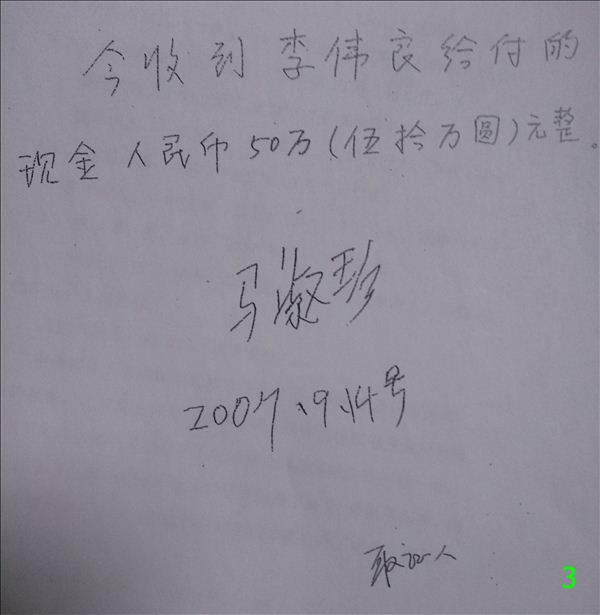 今收到李伟良给付的
现金人民币50万(伍拾万圆)元整。
马淑珍
2007、9、14号
取证人
3